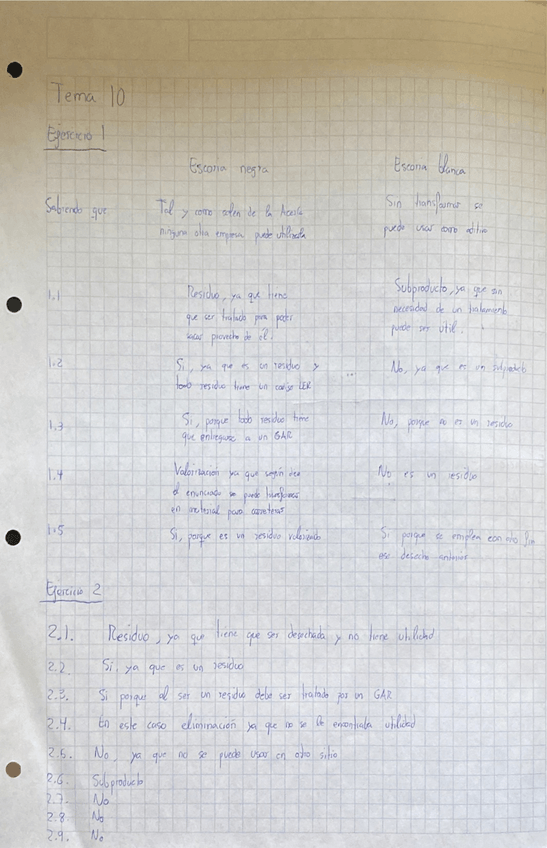 Tema 10
Ejercicio 1
Escoria negra Escoria blanca
Sabiendo que Tal y como salen de la Acería Sin transformar se
ninguna otra empresa puede utilizarla puede usar como aditivo
1.1 Residuo, ya que tiene Subproducto, ya que sin
que ser tratado para poder necesidad de un tratamiento
sacar provecho de él. puede ser útil.
1.2 Si, ya que es un residuo y ... No, ya que es un subproducto
todo residuo tiene un código LER
1.3 Si, porque todo residuo tiene No, porque no es un residuo
que entregarse a un GAR
1.4 Valorización ya que según dice No es un residuo
el enunciado se puede transformar
en material para carreteras
1.5 Si, porque es un residuo valorizado Si porque se emplea con otro fin
ese desecho
Ejercicio 2
2.1. Residuo, ya que tiene que ser desechada y no tiene utilidad
2.2. Si, ya que es un residuo
2.3. Si porque al ser un residuo debe ser tratado por un GAR
2.4. En este caso eliminación ya que no se le encontraba utilidad
2.5. No, ya que no se puede usar en otro sitio
2.6. Subproducto
2.7. No
2.8. No
2.9. No